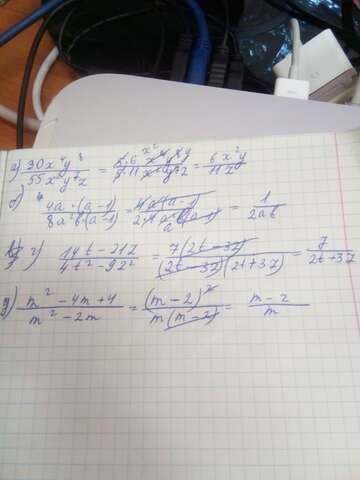 а) 30x⁴y⁸ / 55x²y⁷z = 5·6 x⁴y⁸ / 5·11 x²y⁷z = 6x²y / 11z
б) 4a·(a-1) / 8a²b(a-1) = 4a(a-1) / 2·4a²b(a-1) = 1 / 2ab
г) 14t-21z / 4t²-9z² = 7(2t-3z) / (2t-3z)(2t+3z) = 7 / 2t+3z
д) m²-4m+4 / m²-2m = (m-2)² / m(m-2) = m-2 / m